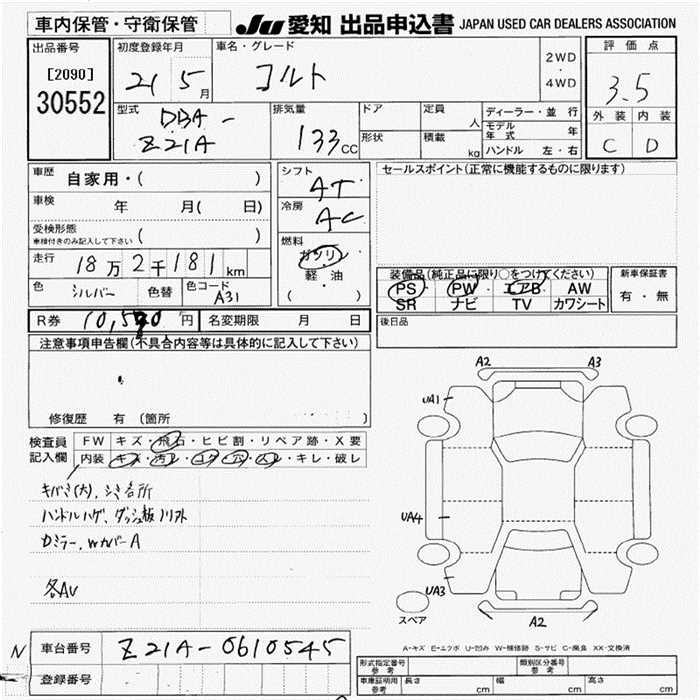 車内保管・守衛保管
JU 愛知 出品申込書 JAPAN USED CAR DEALERS ASSOCIATION
出品番号
[2090]
30552
初度登録年月
21 5 月
車名・グレード
コルト
2WD
・
4WD
評価点
3.5
外装 内装
C D
型式
DBA-
Z21A
排気量
133cc
ドア
形状
定員 人
積載 kg
ディーラー・並行
モデル年式 年
ハンドル 左・右
車歴 自家用・( )
車検 年 月( 日)
受検形態
車検付きのみ記入して下さい ( )
走行 18万2千181km
色 シルバー 色替 色コード A31
シフト AT
冷房 AC
燃料
ガソリン
軽油
( ・ )
セールスポイント(正常に機能するものに限ります)
装備品(純正品に限り○をつけてください)
PS PW エアB AW
SR ナビ TV カワシート
新車保証書
有・無
R券 10,520円 名変期限 月 日
後日品
注意事項申告欄(不具合内容等は具体的に記入して下さい)
修復歴 有 (箇所 )
検査員記入欄
FW キズ・飛石・ヒビ割・リペア跡・X要
内装 キズ・汚レ・コゲ・穴・スレ・キレ・破レ
キバミ(大)、シミ各所
ハンドルハゲ、ダッシュ板ノリオト
Dミラー、WカバーA
各AU
A2 A3
UA1
UA4
UA3
スペア
A2
A-キズ E-エクボ U-凹み W-補修跡 S-サビ C-腐食 XX-交換済
N
車台番号 Z21A-0610545
登録番号
形式指定番号 参考
類別区分番号 参考
車庫証明用 参考 長さ cm 幅 cm 高さ cm